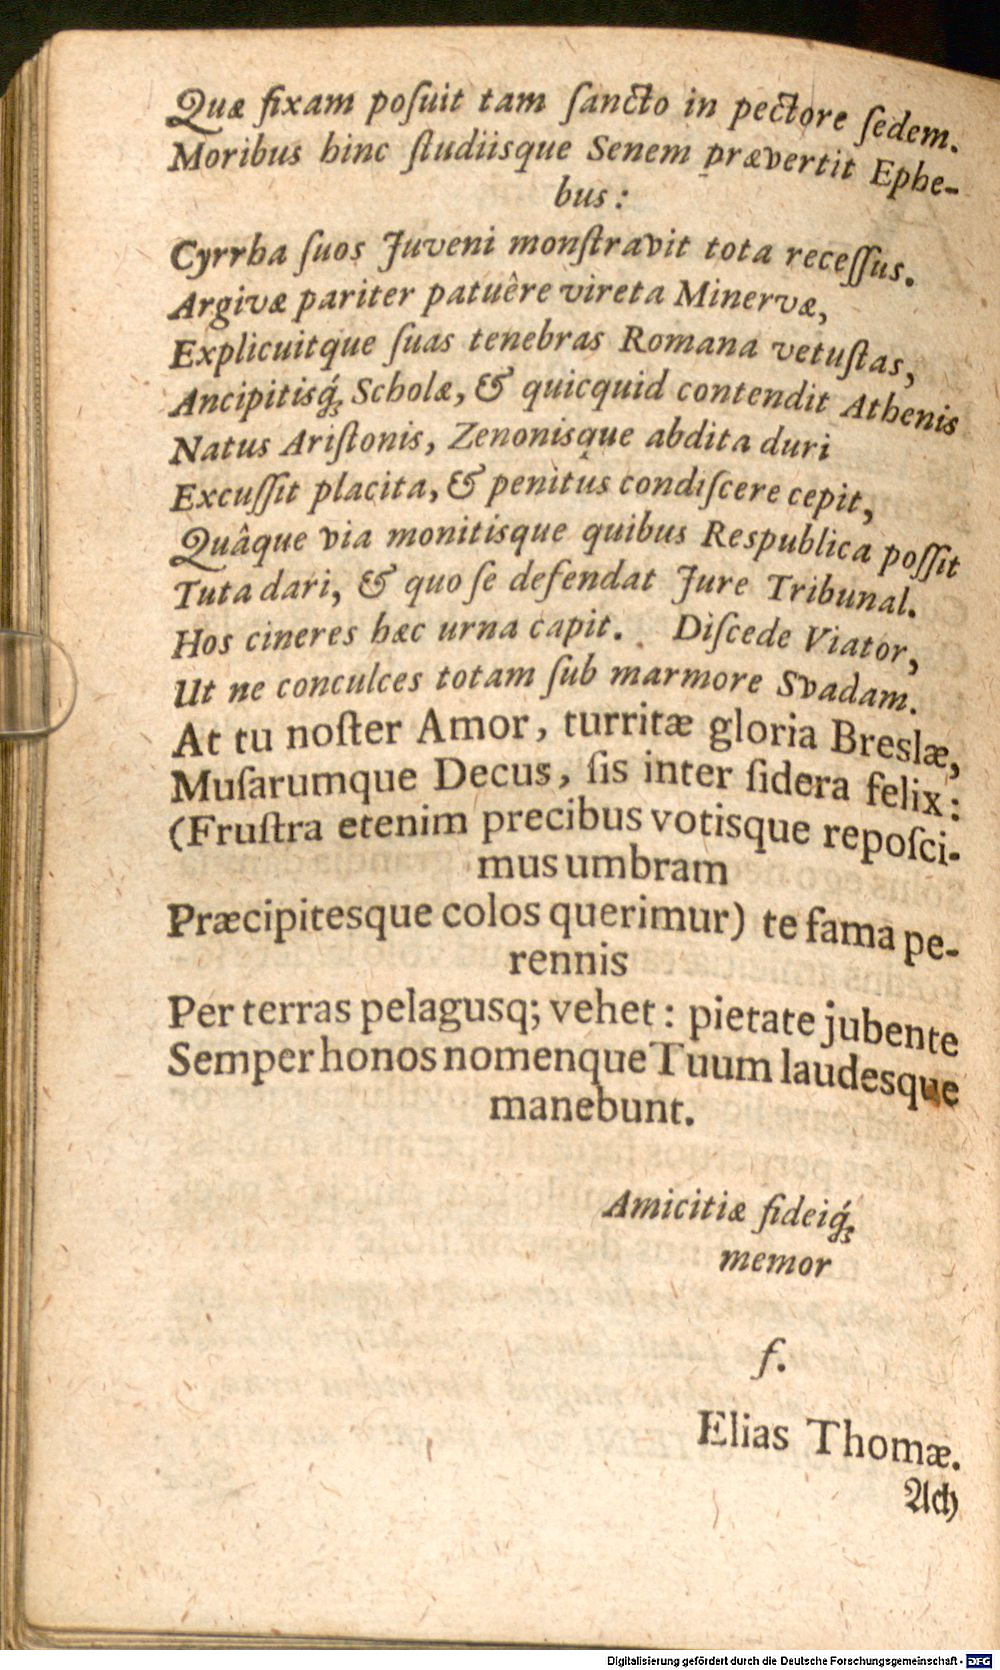 Quæ fixam poſuit tam ſancto in pectore ſedem.
Moribus hinc ſtudiisque Senem prævertit Ephe-
bus:
Cyrrha ſuos Juveni monſtravit tota receſſus.
Argivæ pariter patuêre vireta Minervæ,
Explicuitque ſuas tenebras Romana vetuſtas,
Ancipitisq́; Scholæ, & quicquid contendit Athenis
Natus Ariſtonis, Zenonisque abdita duri
Excuſſit placita, & penitus condiſcere cepit,
Quâque via monitisque quibus Respublica poſſit
Tuta dari, & quo ſe defendat Jure Tribunal.
Hos cineres hæc urna capit. Diſcede Viator,
Ut ne conculces totam ſub marmore Svadam.
At tu noſter Amor, turritæ gloria Breslæ,
Muſarumque Decus, ſis inter ſidera felix:
(Fruſtra etenim precibus votisque repoſci-
mus umbram
Præcipitesque colos querimur) te fama pe-
rennis
Per terras pelagusq; vehet: pietate jubente
Semper honos nomenque Tuum laudesque
manebunt.
Amicitiæ fideiq́;
memor
f.
Elias Thomæ.
Ach
Digitalisierung gefördert durch die Deutsche Forschungsgemeinschaft - DFG